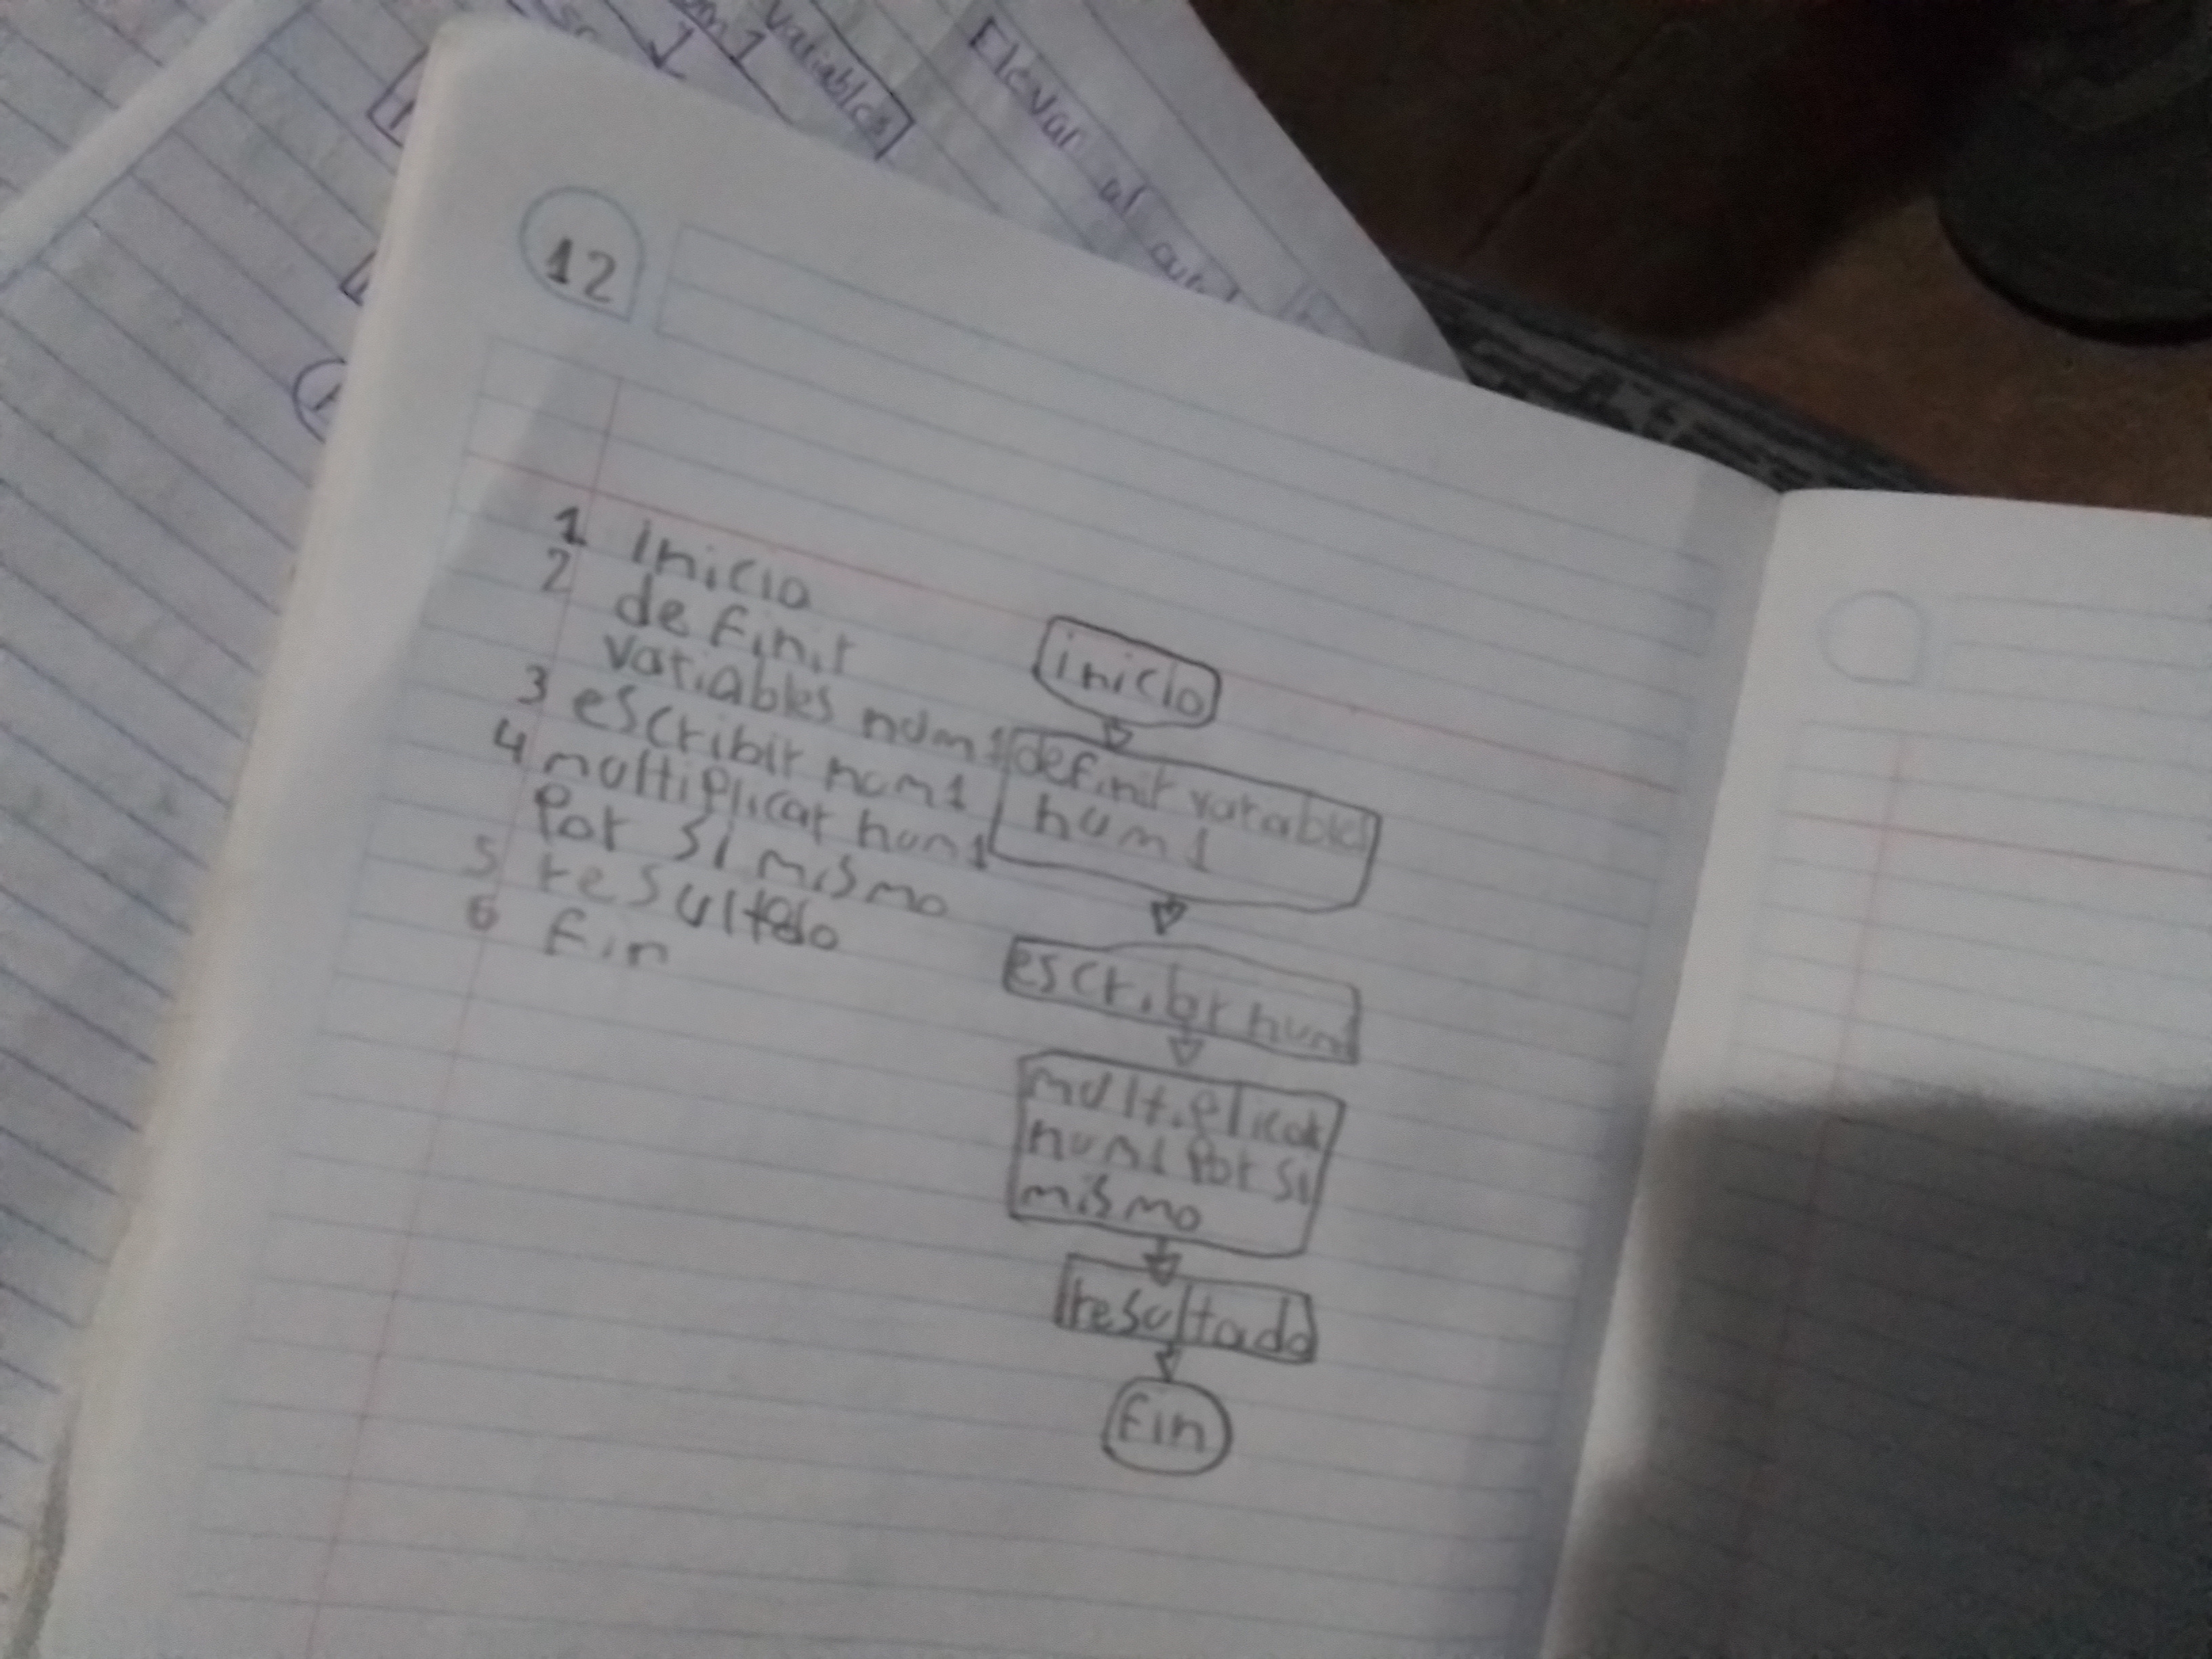 variables
Elevar al
12
1 inicio
2 definir
variables num1
3 escribir num1
4 multiplicar num1
Por si mismo
5 resultado
6 fin
inicio
definir variables
num1
escribir num1
multiplicar
num1 Por si
mismo
resultado
fin